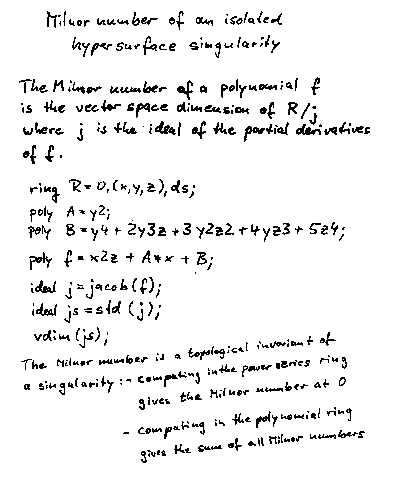 Milnor number of an isolated
hypersurface singularity
The Milnor number of a polynomial f
is the vector space dimension of R/j
where j is the ideal of the partial derivatives
of f.
ring R=0,(x,y,z),ds;
poly A=y2;
poly B=y4+2y3z+3y2z2+4yz3+5z4;
poly f=x2z+A*x+B;
ideal j=jacob(f);
ideal js=std(j);
vdim(js);
The Milnor number is a topological invariant of
a singularity: - computing in the power series ring
gives the Milnor number at 0
- computing in the polynomial ring
gives the sum of all Milnor numbers